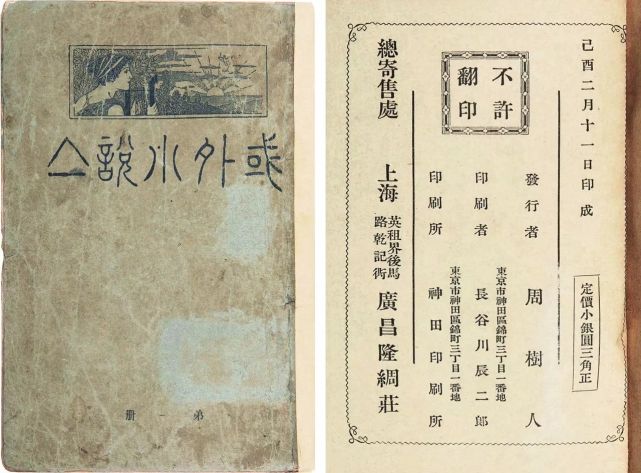 或外小說亼
弟一册
己酉二月十一日印成
定價小銀圓三角正
發行者 周樹人
東京市神田區錦町三丁目一番地
印刷者 長谷川辰二郎
東京市神田區錦町三丁目一番地
印刷所 神田印刷所
不許
翻印
總寄售處 上海 英租界後馬
路乾記衖
廣昌隆綢莊